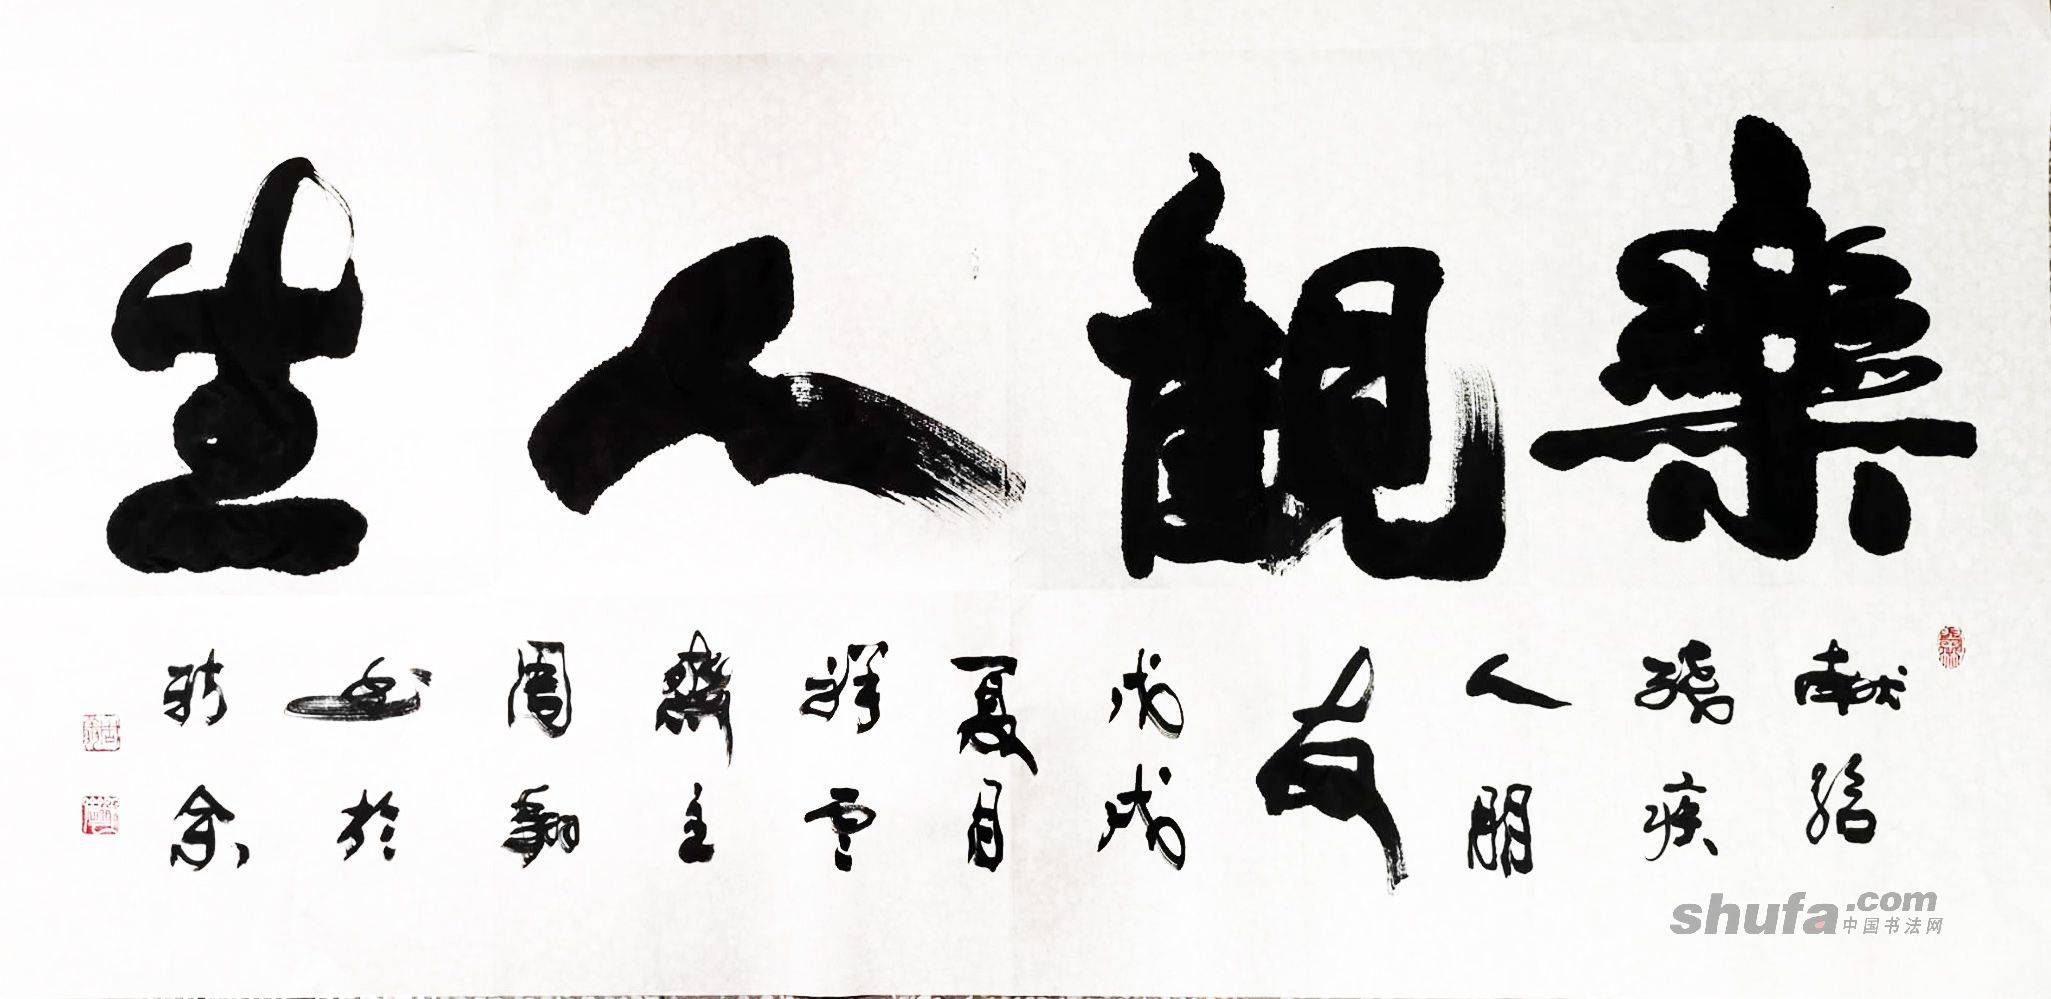 樂觀人生
献給
殘疾
人朋
友
戊戌
夏月
祥雲
齋主
周翔
书於
新余
shufa.com
中国书法网